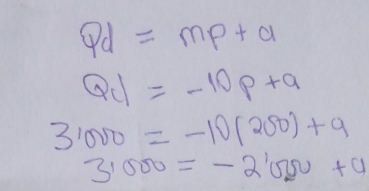 Qd = mp + a
Qd = -10p + a
3'000 = -10(200) + a
3'000 = -2'000 + a